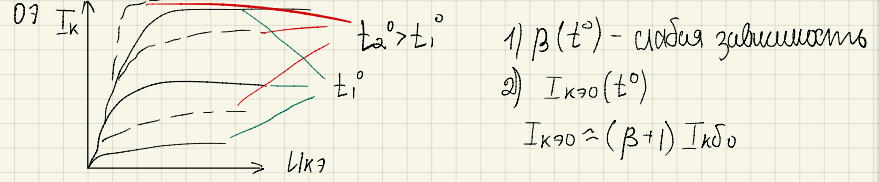 ОЭ
Iк
t₂° > t₁°
t₁°
Uкэ
1) β(t°) - слабая зависимость
2) Iкэо(t°)
Iкэо ≈ (β+1) Iкбо